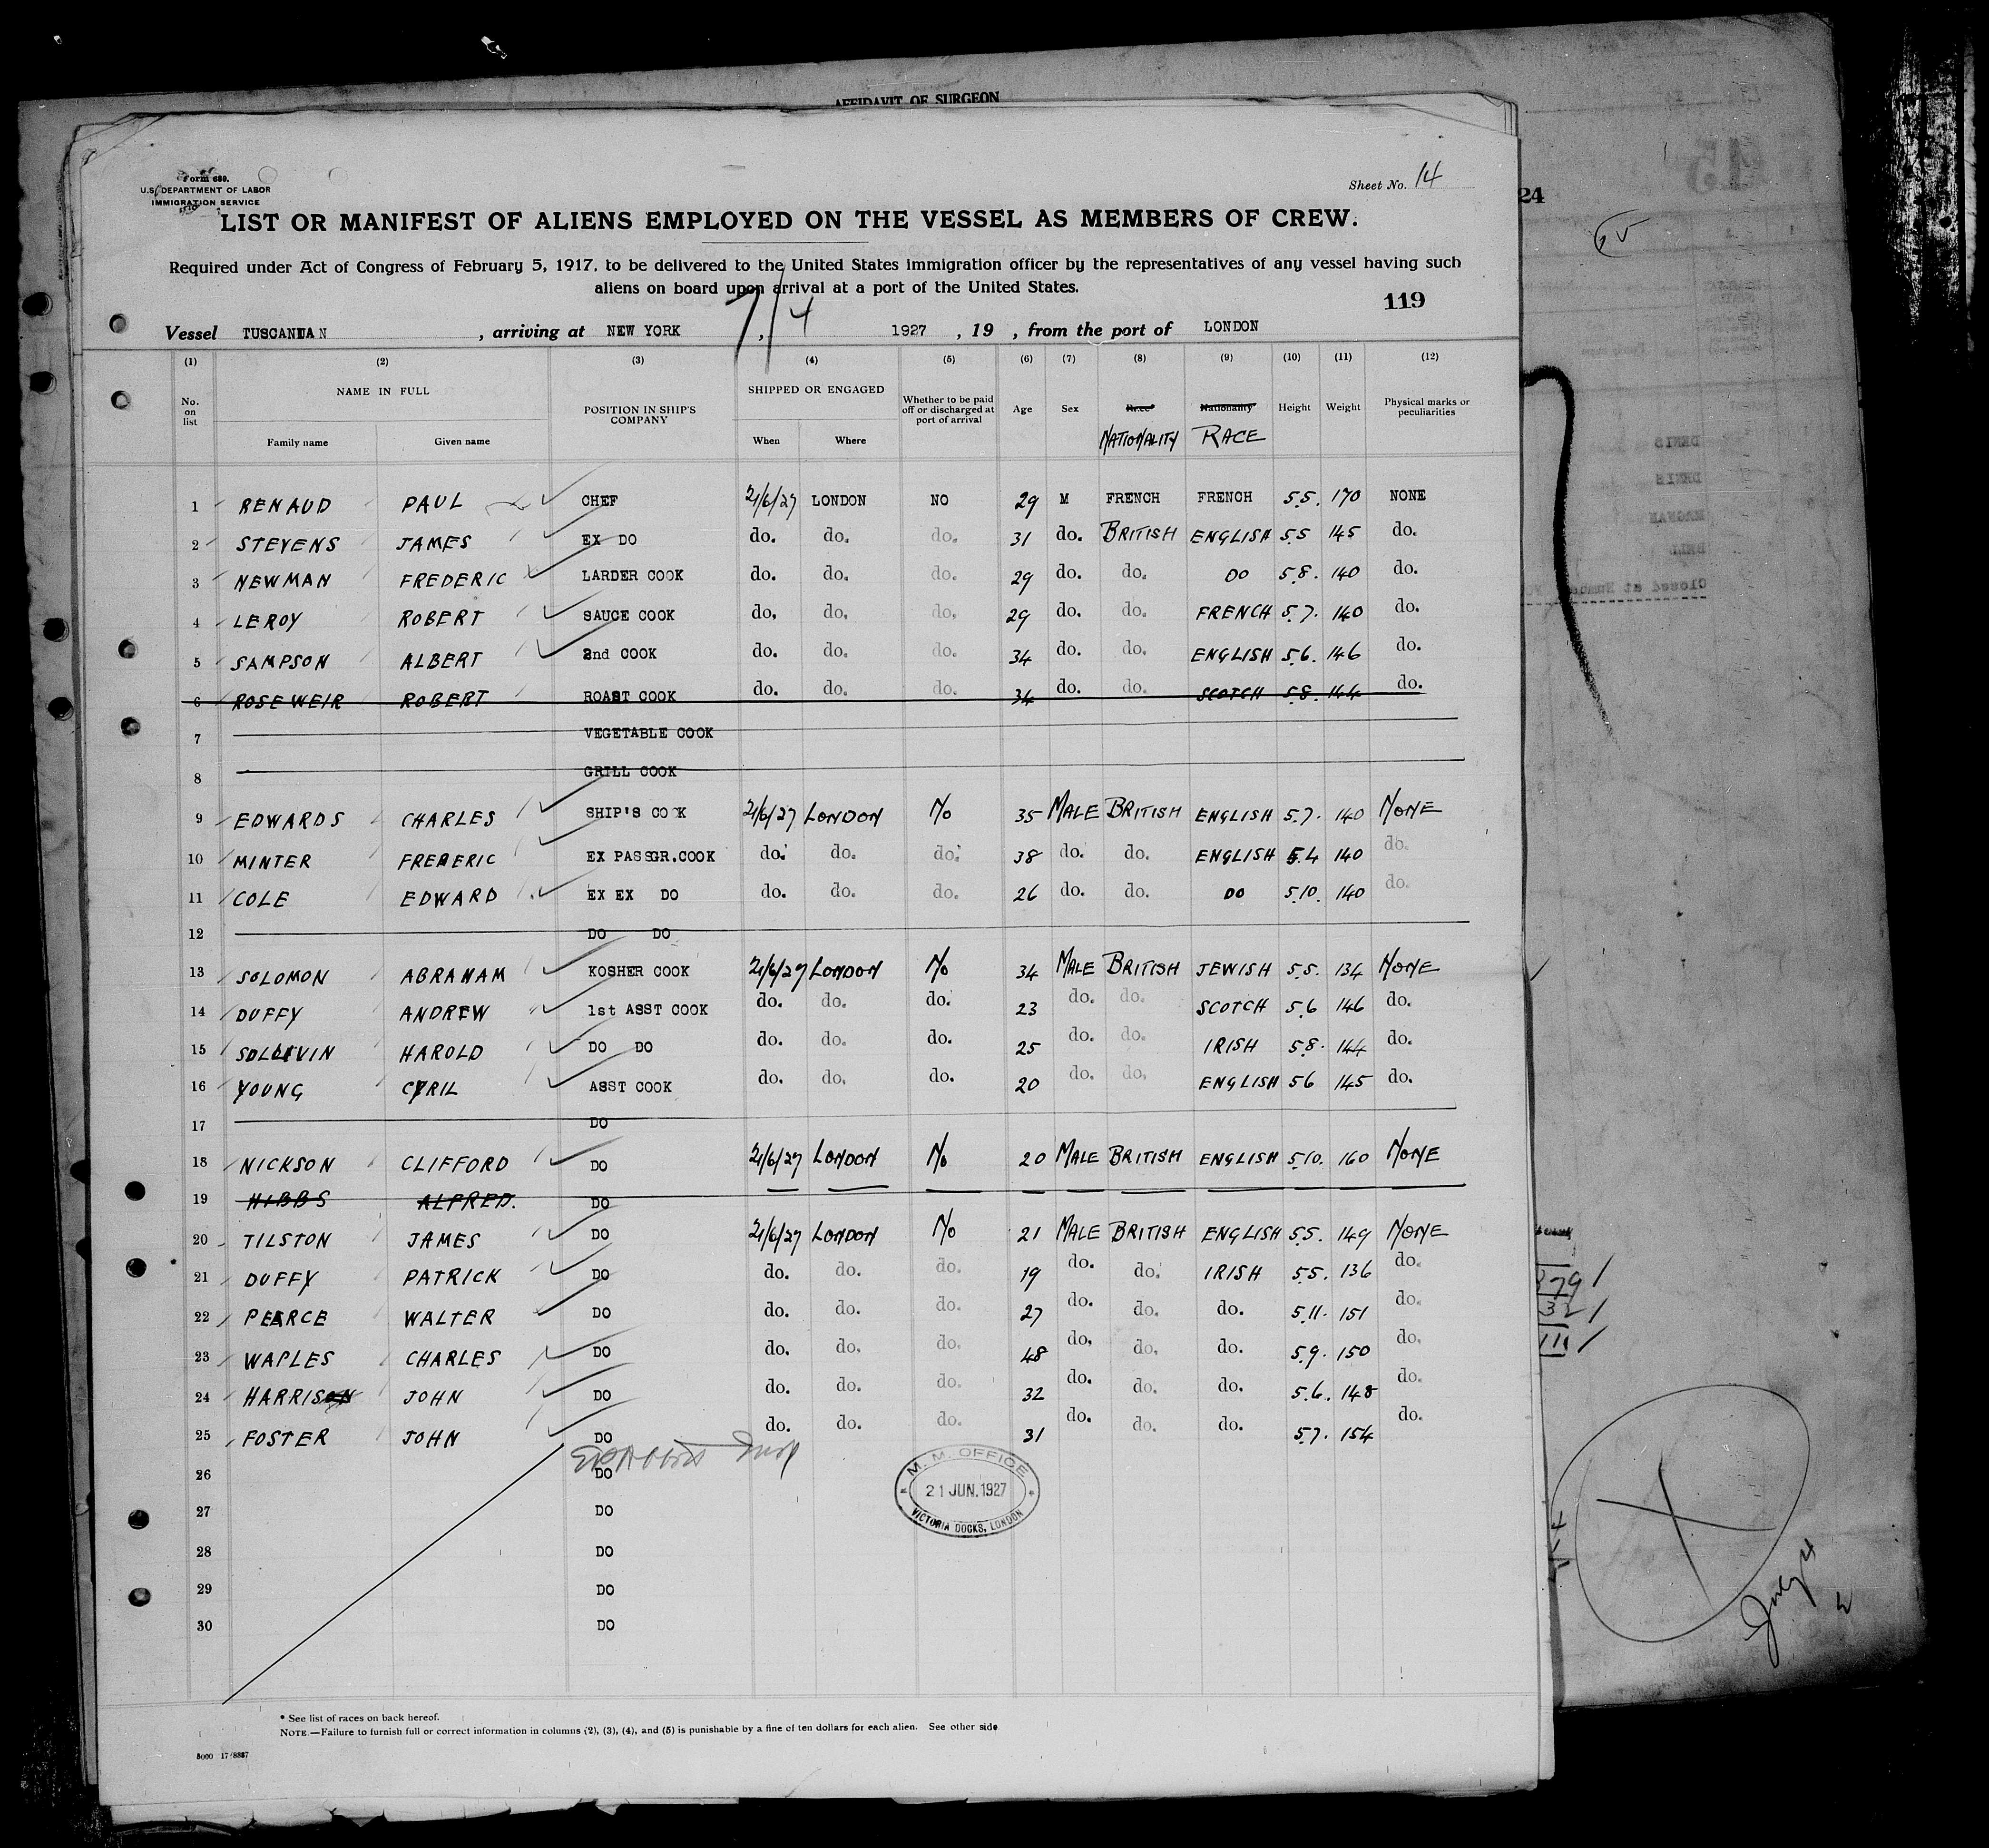 AFFIDAVIT OF SURGEON
Form 680.
U.S. DEPARTMENT OF LABOR
IMMIGRATION SERVICE
Sheet No. 14
LIST OR MANIFEST OF ALIENS EMPLOYED ON THE VESSEL AS MEMBERS OF CREW.
Required under Act of Congress of February 5, 1917, to be delivered to the United States immigration officer by the representatives of any vessel having such
aliens on board upon arrival at a port of the United States.
119
Vessel TUSCANIA N, arriving at NEW YORK, 7/4 1927, 19 , from the port of LONDON
(1) (2) (3) (4) (5) (6) (7) (8) (9) (10) (11) (12)
No. on list NAME IN FULL Family name Given name POSITION IN SHIP'S COMPANY SHIPPED OR ENGAGED When Where Whether to be paid off or discharged at port of arrival Age Sex Race Nationality Height Weight Physical marks or peculiarities
NATIONALITY RACE
1 RENAUD PAUL CHEF 21/6/27 LONDON NO 29 M FRENCH FRENCH 5.5. 170 NONE
2 STEVENS JAMES EX DO do. do. do. 31 do. BRITISH ENGLISH 5.5 145 do.
3 NEWMAN FREDERIC LARDER COOK do. do. do. 29 do. do. DO 5.8. 140 do.
4 LEROY ROBERT SAUCE COOK do. do. do. 29 do. do. FRENCH 5.7. 140 do.
5 SAMPSON ALBERT 2nd COOK do. do. do. 34 do. do. ENGLISH 5.6. 146 do.
6 ROSEWEIR ROBERT ROAST COOK do. do. do. 34 do. do. SCOTCH 5.8. 144 do.
7 VEGETABLE COOK
8 GRILL COOK
9 EDWARDS CHARLES SHIP'S COOK 21/6/27 LONDON No 35 MALE BRITISH ENGLISH 5.7. 140 NONE
10 MINTER FREDERIC EX PASSGR.COOK do. do. do. 38 do. do. ENGLISH 5.4 140 do.
11 COLE EDWARD EX EX DO do. do. do. 26 do. do. DO 5.10. 140 do.
12 DO DO
13 SOLOMON ABRAHAM KOSHER COOK 21/6/27 LONDON No 34 MALE BRITISH JEWISH 5.5. 134 NONE
14 DUFFY ANDREW 1st ASST COOK do. do. do. 23 do. do. SCOTCH 5.6 146 do.
15 SOLLIVIN HAROLD DO DO do. do. do. 25 do. do. IRISH 5.8. 144 do.
16 YOUNG CYRIL ASST COOK do. do. do. 20 do. do. ENGLISH 5.6 145 do.
17 DO
18 NICKSON CLIFFORD DO 21/6/27 LONDON No 20 MALE BRITISH ENGLISH 5.10. 160 NONE
19 HIBBS ALFRED. DO
20 TILSTON JAMES DO 21/6/27 LONDON No 21 MALE BRITISH ENGLISH 5.5. 149 NONE
21 DUFFY PATRICK DO do. do. do. 19 do. do. IRISH 5.5. 136 do.
22 PEARCE WALTER DO do. do. do. 27 do. do. do. 5.11. 151 do.
23 WAPLES CHARLES DO do. do. do. 48 do. do. do. 5.9. 150 do.
24 HARRISON JOHN DO do. do. do. 32 do. do. do. 5.6. 148 do.
25 FOSTER JOHN DO do. do. do. 31 do. do. do. 5.7. 154 do.
26 DO
27 DO
28 DO
29 DO
30 DO
M. M. OFFICE
21 JUN. 1927
VICTORIA DOCKS, LONDON
* See list of races on back hereof.
NOTE.—Failure to furnish full or correct information in columns (2), (3), (4), and (5) is punishable by a fine of ten dollars for each alien. See other side
5000 17/8837
24
X
July 4